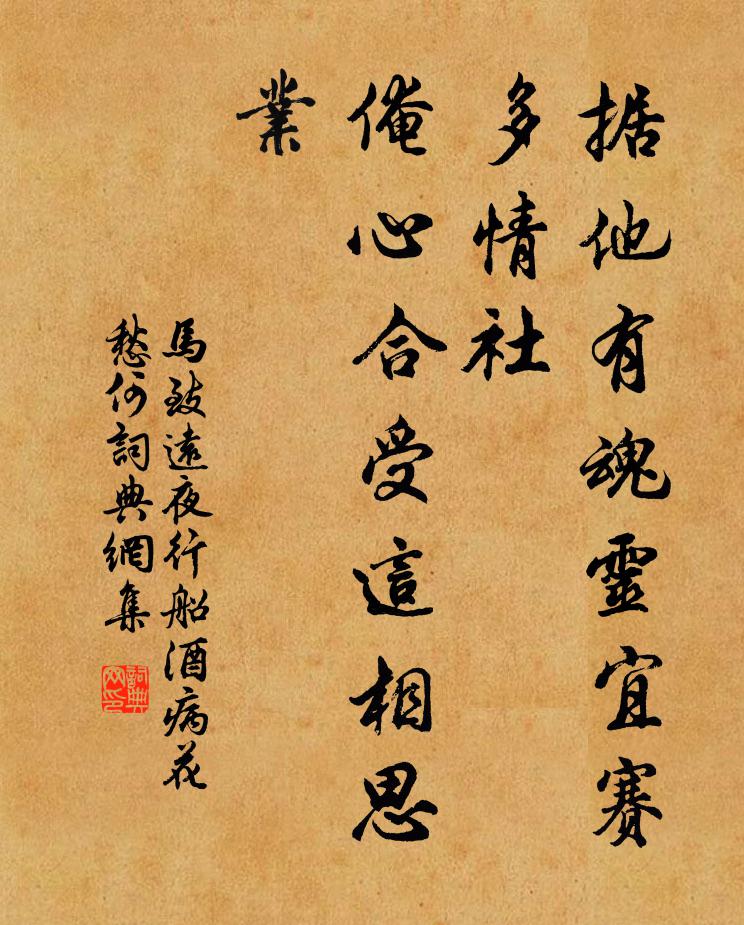 据他有魂靈宜賽
多情社
俺心合受這相思
業
馬致遠夜行船酒病花
愁何詞典網集
詞典網印